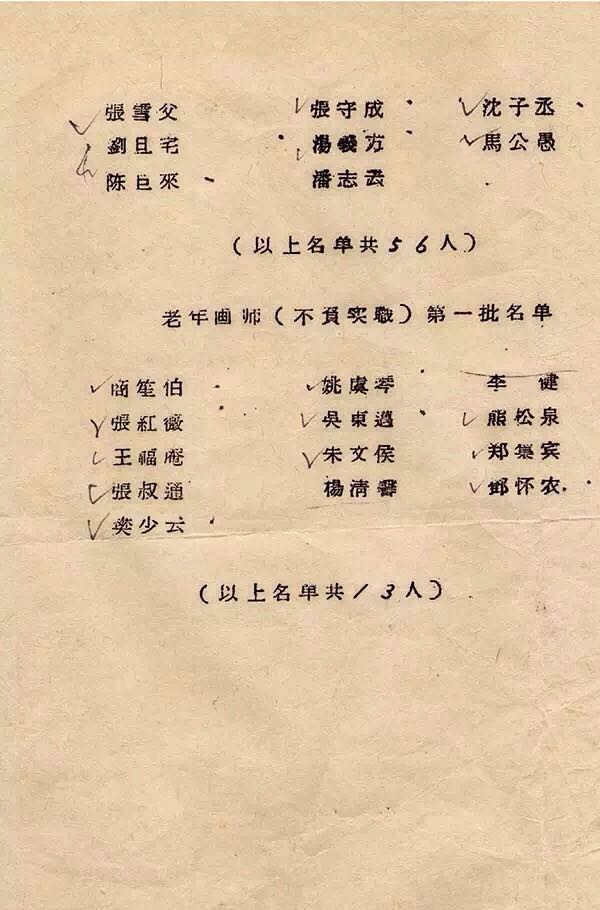 張雪父 張守成 沈子丞
劉旦宅 湯義方 馬公愚
陈巨來 潘志云
(以上名单共56人)
老年画师(不負实职)第一批名单
商笙伯 姚虞琴 李健
張紅薇 吳東邁 熊松泉
王福庵 朱文侯 郑集宾
張叔通 楊清磬 鄧怀农
樊少云
(以上名单共13人)